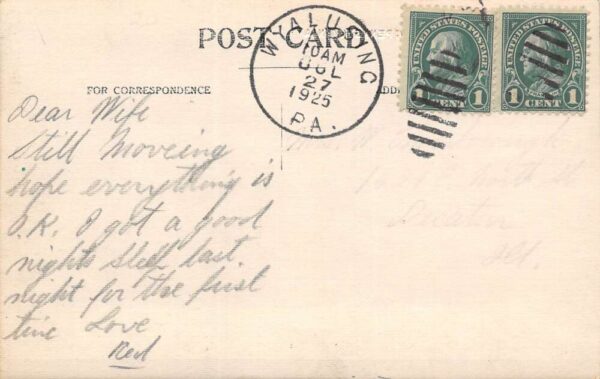 POST CARD
WYALUSING
10 AM
JUL
27
1925
PA.
UNITED STATES POSTAGE
1 CENT 1
UNITED STATES POSTAGE
1 CENT 1
FOR CORRESPONDENCE
Dear Wife
Still Moveing
hope everything is
O.K. I got a good
nights Sleep last.
night for the first
time Love
Red
Decatur
Ill.